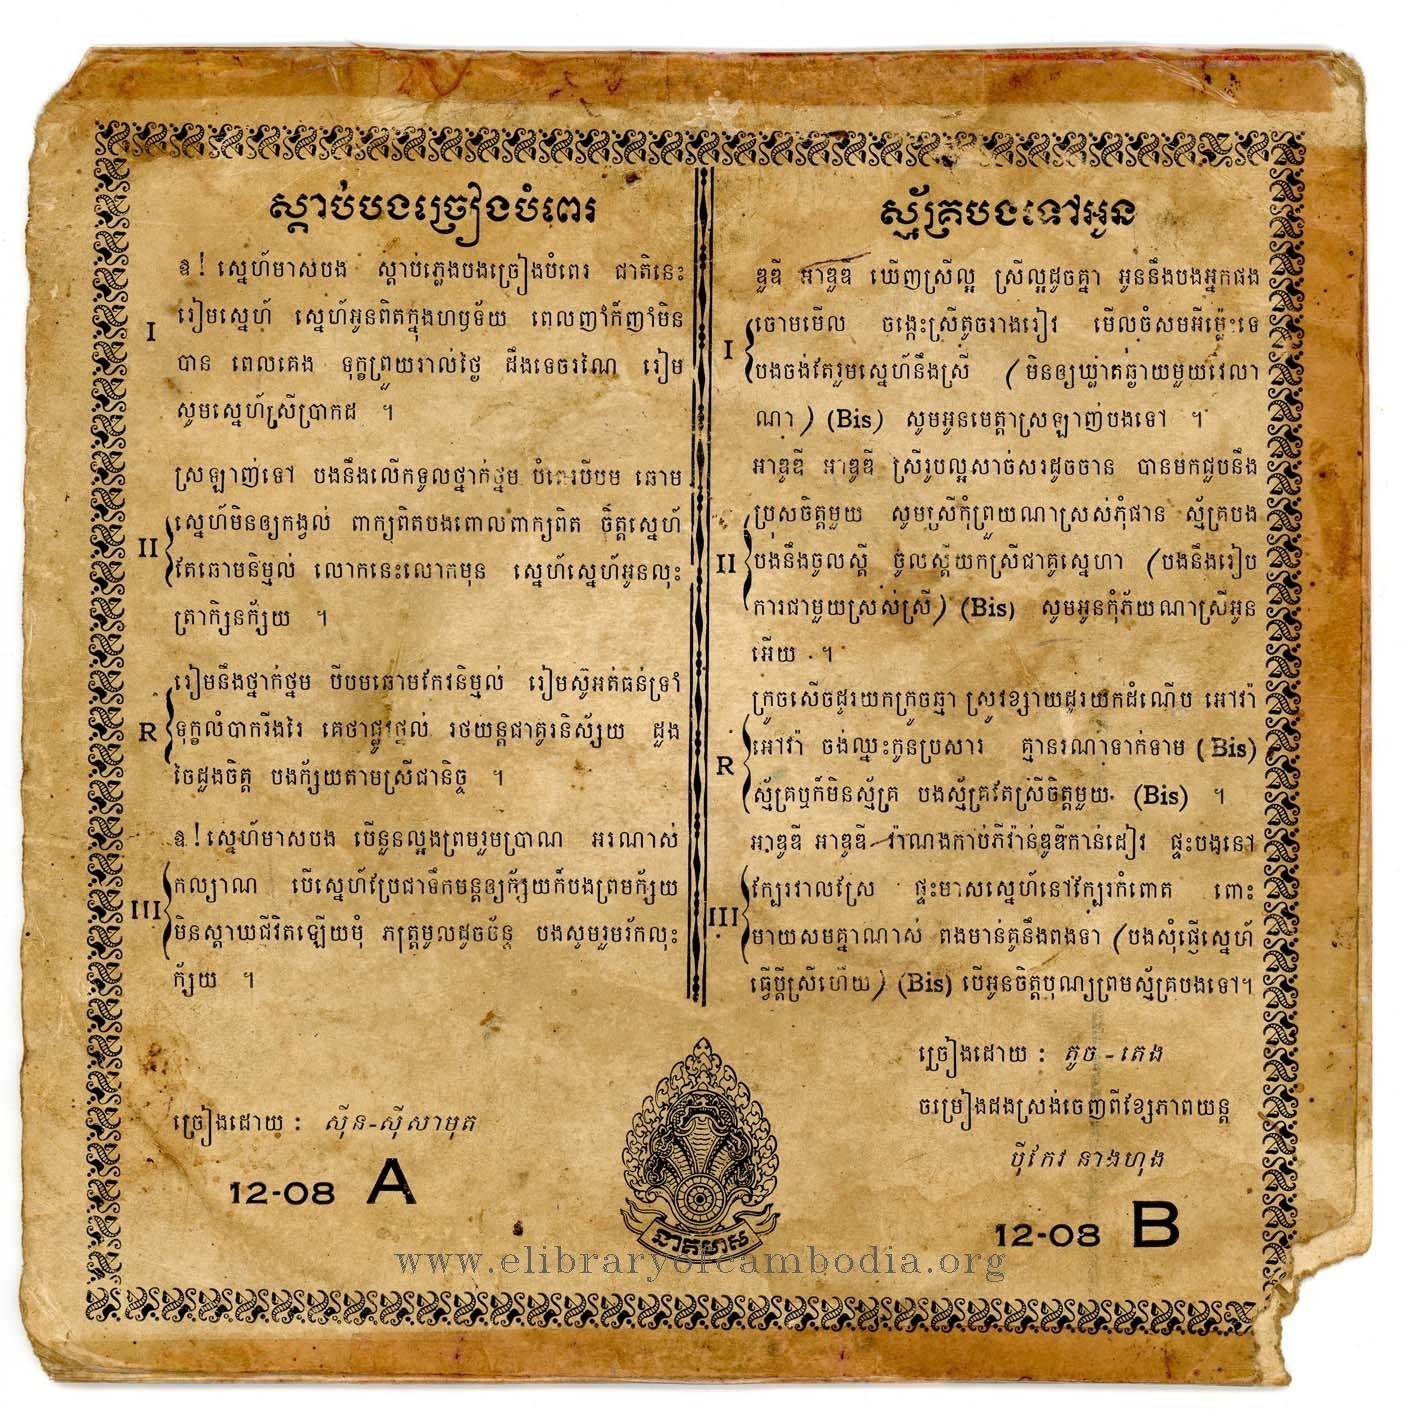 ស្ដាប់បងច្រៀងបំពេរ
ឱ ! ស្នេហ៍មាសបង ស្ដាប់ភ្លេងបងច្រៀងបំពេរ ជាតិនេះ
I រៀមស្នេហ៍ ស្នេហ៍អូនពិតក្នុងហឫទ័យ ពេលញ៉ាំក៏ញ៉ាំមិន
បាន ពេលគេង ទុក្ខព្រួយរាល់ថ្ងៃ ដឹងទេចរណៃ រៀម
សូមស្នេហ៍ស្រីប្រាកដ ។
ស្រឡាញ់ទៅ បងនឹងលើកទូលថ្នាក់ថ្នម បំពេរបីបម ឆោម
II ស្នេហ៍មិនឲ្យកង្វល់ ពាក្យពិតបងពោលពាក្យពិត ចិត្តស្នេហ៍
តែឆោមនិម្មល់ លោកនេះលោកមុន ស្នេហ៍ស្នេហ៍អូនលុះ
ត្រាក្សិនក័្សយ ។
រៀមនឹងថ្នាក់ថ្នម បីបមឆោមកែវនិម្មល់ រៀមស៊ូអត់ធន់ទ្រាំ
R ទុក្ខលំបាករីងរៃ គេថាផ្លូវថ្នល់ រថយន្តជាគូរនិស្ស័យ ដួង
ចៃដួងចិត្ត បងក័្សយតាមស្រីជានិច្ច ។
ឱ ! ស្នេហ៍មាសបង បើនួនល្អងព្រមរួមប្រាណ អរណាស់
III កល្យាណ បើស្នេហ៍ប្រែជាទឹកមន្តឲ្យក័្សយក៏បងព្រមក័្សយ
មិនស្ដាយជីវិតឡើយមុំ ភក្ត្រមូលដូចច័ន្ទ បងសូមរួមរ័កលុះ
ក័្សយ ។
ច្រៀងដោយ : ស៊ីន-ស៊ីសាមុត
12-08 A
ស្ម័គ្របងទៅអូន
ឌូឌី អាឌូឌី ឃើញស្រីល្អ ស្រីល្អដូចគ្នា អូននឹងបងអ្នកផង
I ចោមមើល ចង្កេះស្រីតូចរាងរៀវ មើលចំសមអីម៉្លេះទេ
បងចង់តែរួមស្នេហ៍នឹងស្រី (មិនឲ្យឃ្លាតឆ្ងាយមួយវេលា
ណា) (Bis) សូមអូនមេត្តាស្រឡាញ់បងទៅ ។
អាឌូឌី អាឌូឌី ស្រីរូបល្អសាច់សរដូចចាន បានមកជួបនឹង
ប្រុសចិត្តមួយ សូមស្រីកុំព្រួយណាស្រស់ភុំផាន ស្ម័គ្របង
II បងនឹងចូលស្ដី ចូលស្ដីយកស្រីជាគូស្នេហា (បងនឹងរៀប
ការជាមួយស្រស់ស្រី) (Bis) សូមអូនកុំភ័យណាស្រីអូន
អើយ ។
ក្រូចសើចដូរយកក្រូចឆ្មា ស្រូវខ្សាយដូរយកដំណើប អៅវ៉ា
R អៅវ៉ា ចង់ឈ្នះកូនប្រសារ គ្មានរណាទាក់ទាម (Bis)
ស្ម័គ្រឬក៏មិនស្ម័គ្រ បងស្ម័គ្រតែស្រីចិត្តមួយ (Bis) ។
អាឌូឌី អាឌូឌី វ៉ាណងកាប់ភីវ៉ាន់ឌូឌីកាន់ដៀវ ផ្ទះបងនៅ
ក្បែរវាលស្រែ ផ្ទះមាសស្នេហ៍នៅក្បែរកំពោត ពោះ
III មាយសមគ្នាណាស់ ពងមាន់គូនឹងពងទា (បងសុំផ្ញើស្នេហ៍
ធ្វើប្ដីស្រីហើយ) (Bis) បើអូនចិត្តបុណ្យព្រមស្ម័គ្របងទៅ។
ច្រៀងដោយ : តូច - តេង
ចម្រៀងដងស្រង់ចេញពីខ្សែភាពយន្ត
ប៉ីកែវ នាងហុង
12-08 B
នាគមាស
www.elibraryofcambodia.org